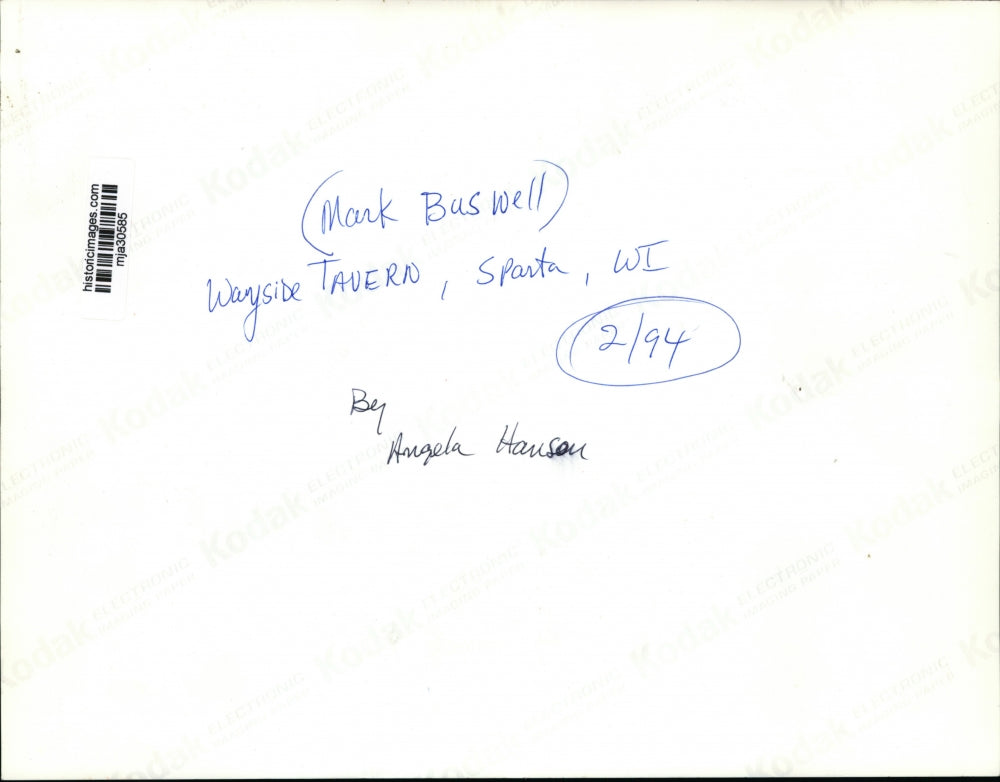 historicimages.com
mja30585
(Mark Buswell)
Wayside TAVERN, Sparta, WI
2/94
By
Angela Hanson
Kodak ELECTRONIC IMAGING PAPER